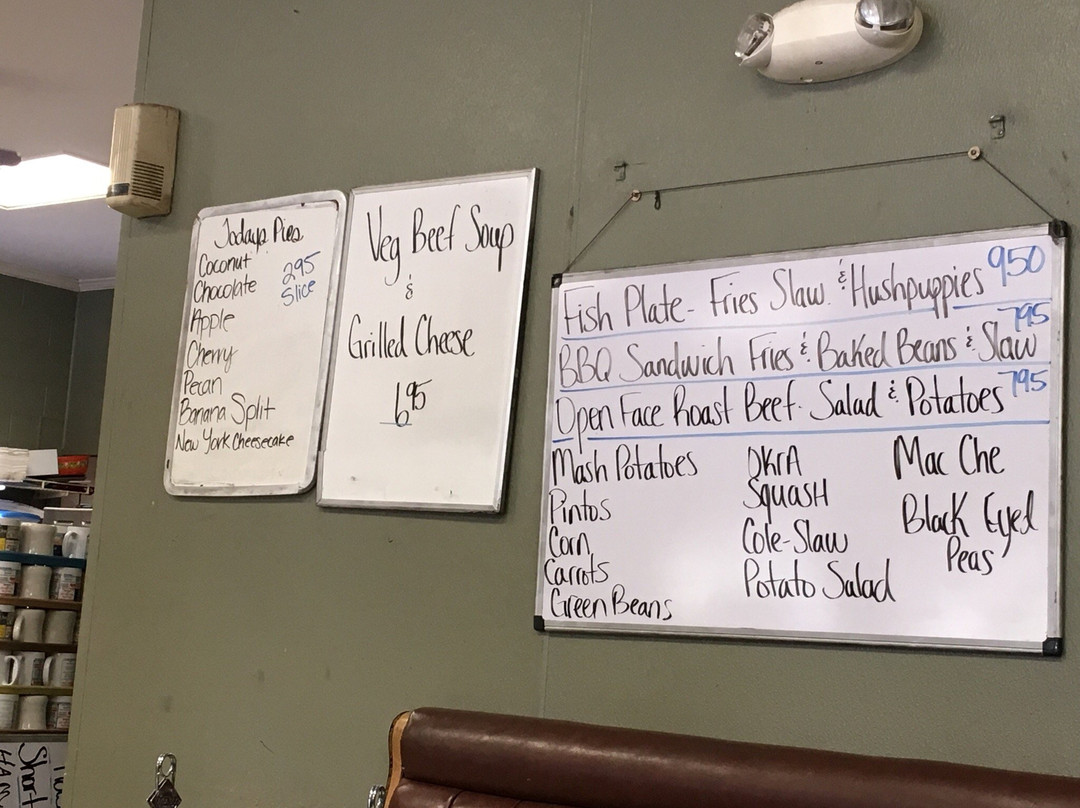 Todays Pies
Coconut
Chocolate
295
Slice
Apple
Cherry
Pecan
Banana Split
New York Cheesecake
Veg Beef Soup
&
Grilled Cheese
6.95
Fish Plate - Fries Slaw & Hushpuppies 950
BBQ Sandwich Fries & Baked Beans & Slaw 795
Open Face Roast Beef. Salad & Potatoes 795
Mash Potatoes
Pintos
Corn
Carrots
Green Beans
OKrA
SquasH
Cole-Slaw
Potato Salad
Mac Che
Black Eyed
Peas
Short